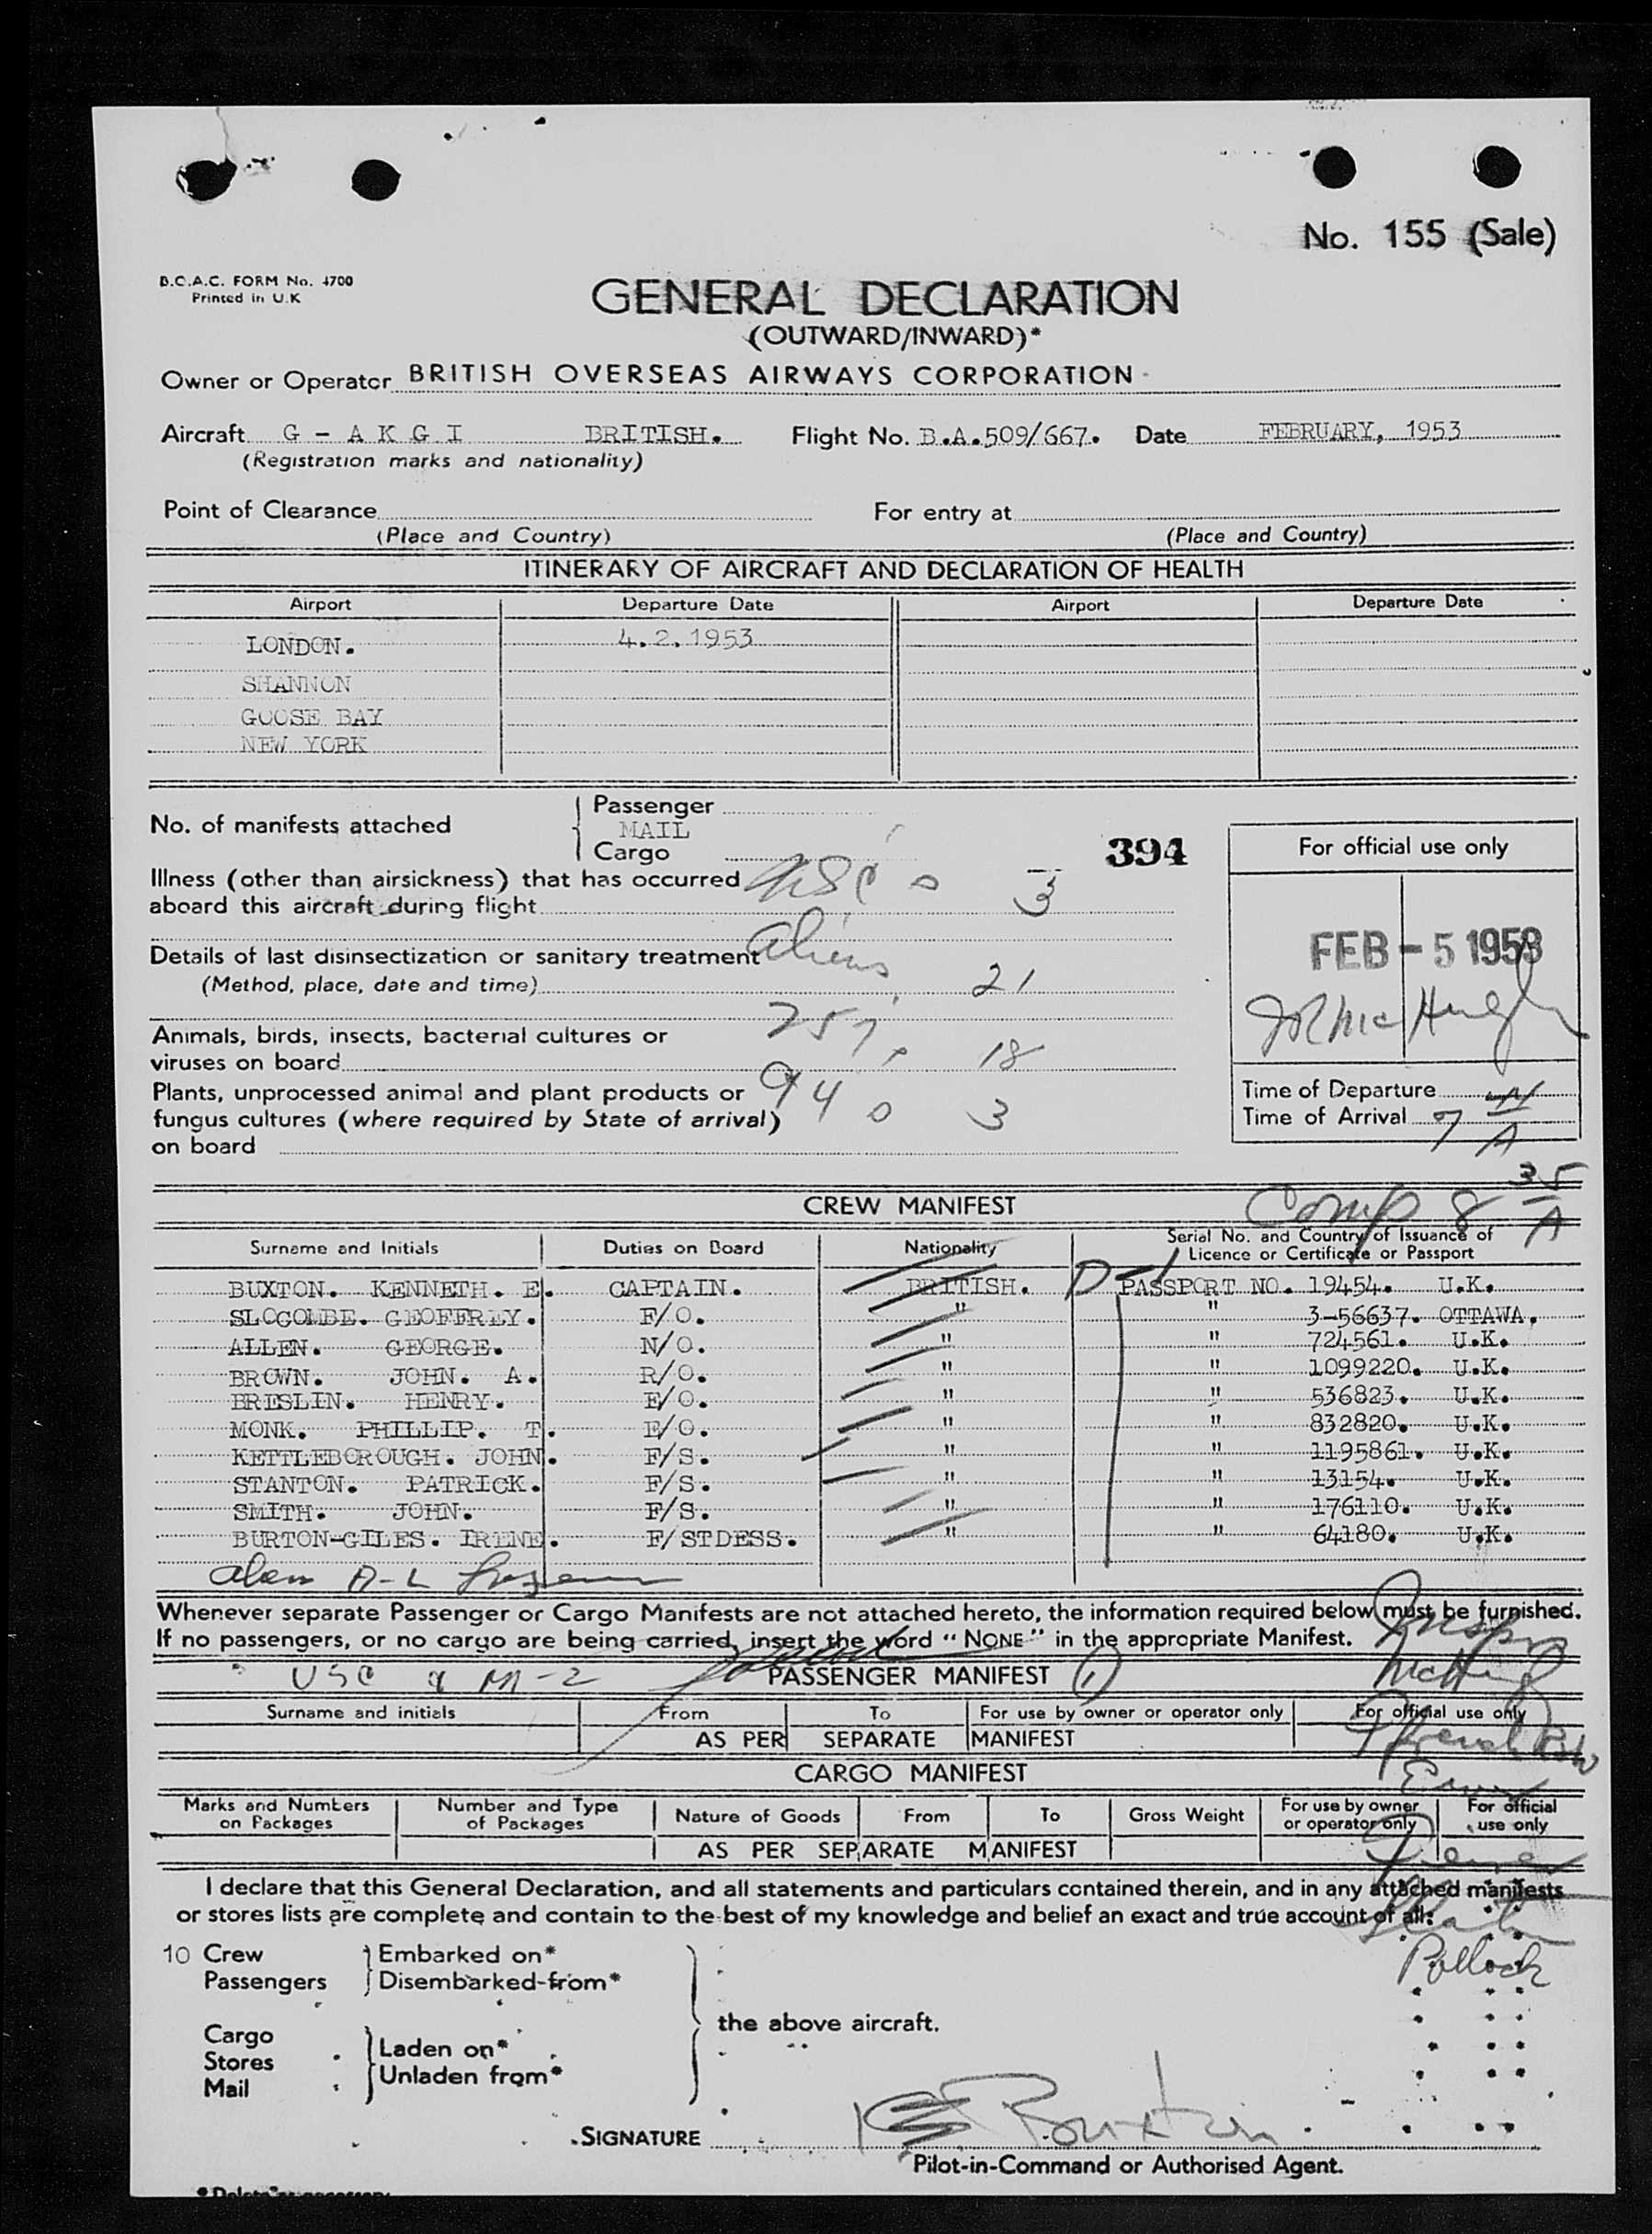 No. 155 (Sale)
B.O.A.C. FORM No. 4700
Printed in U.K
GENERAL DECLARATION
(OUTWARD/INWARD)*
Owner or Operator BRITISH OVERSEAS AIRWAYS CORPORATION
Aircraft G - A K G I BRITISH. Flight No. B.A.509/667. Date FEBRUARY, 1953
(Registration marks and nationality)
Point of Clearance For entry at
(Place and Country) (Place and Country)
ITINERARY OF AIRCRAFT AND DECLARATION OF HEALTH
Airport Departure Date Airport Departure Date
LONDON. 4.2.1953
SHANNON
GOOSE BAY
NEW YORK
No. of manifests attached
Passenger
MAIL
Cargo
394
For official use only
Illness (other than airsickness) that has occurred USC
aboard this aircraft during flight 3
FEB - 5 1953
Details of last disinsectization or sanitary treatment aliens
(Method, place, date and time) 21
JR McHugh
Animals, birds, insects, bacterial cultures or 257
viruses on board 18
Plants, unprocessed animal and plant products or 94
fungus cultures (where required by State of arrival) 3
on board
Time of Departure
Time of Arrival 7 A
35
A
CREW MANIFEST Comp 8
Surname and Initials Duties on Board Nationality Serial No. and Country of Issuance of
Licence or Certificate or Passport
BUXTON. KENNETH. E. CAPTAIN. BRITISH. D-1 PASSPORT NO. 19454. U.K.
SLOCOMBE. GEOFFREY. F/O. " " 3-56637. OTTAWA.
ALLEN. GEORGE. N/O. " " 724561. U.K.
BROWN. JOHN. A. R/O. " " 1099220. U.K.
BRESLIN. HENRY. E/O. " " 536823. U.K.
MONK. PHILLIP. T. E/O. " " 832820. U.K.
KETTLEBOROUGH. JOHN. F/S. " " 1195861. U.K.
STANTON. PATRICK. F/S. " " 13154. U.K.
SMITH. JOHN. F/S. " " 176110. U.K.
BURTON-GILES. IRENE. F/STDESS. " " 64180. U.K.
Whenever separate Passenger or Cargo Manifests are not attached hereto, the information required below must be furnished.
If no passengers, or no cargo are being carried, insert the word "NONE" in the appropriate Manifest.
USC PASSENGER MANIFEST (1)
McHugh
Surname and initials From To For use by owner or operator only For official use only
AS PER SEPARATE MANIFEST
CARGO MANIFEST
Marks and Numbers on Packages Number and Type of Packages Nature of Goods From To Gross Weight For use by owner or operator only For official use only
AS PER SEPARATE MANIFEST
I declare that this General Declaration, and all statements and particulars contained therein, and in any attached manifests
or stores lists are complete and contain to the best of my knowledge and belief an exact and true account of all:
Pollock
10 Crew Embarked on*
Passengers Disembarked from*
the above aircraft.
Cargo
Stores Laden on*
Mail Unladen from*
SIGNATURE K E Buxton
Pilot-in-Command or Authorised Agent.